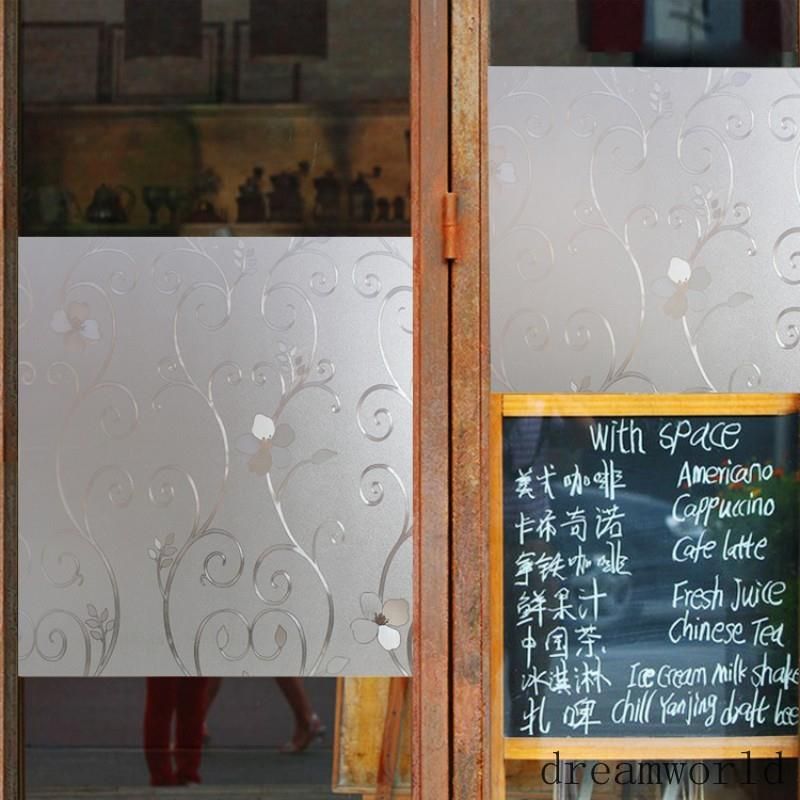 with space
美式咖啡 Americano
卡布奇诺 Cappuccino
拿铁咖啡 Cafe latte
鲜果汁 Fresh Juice
中国茶 Chinese Tea
冰淇淋 Ice Cream Milk shake
扎啤 Chill Yanjing draft bee
dreamworld